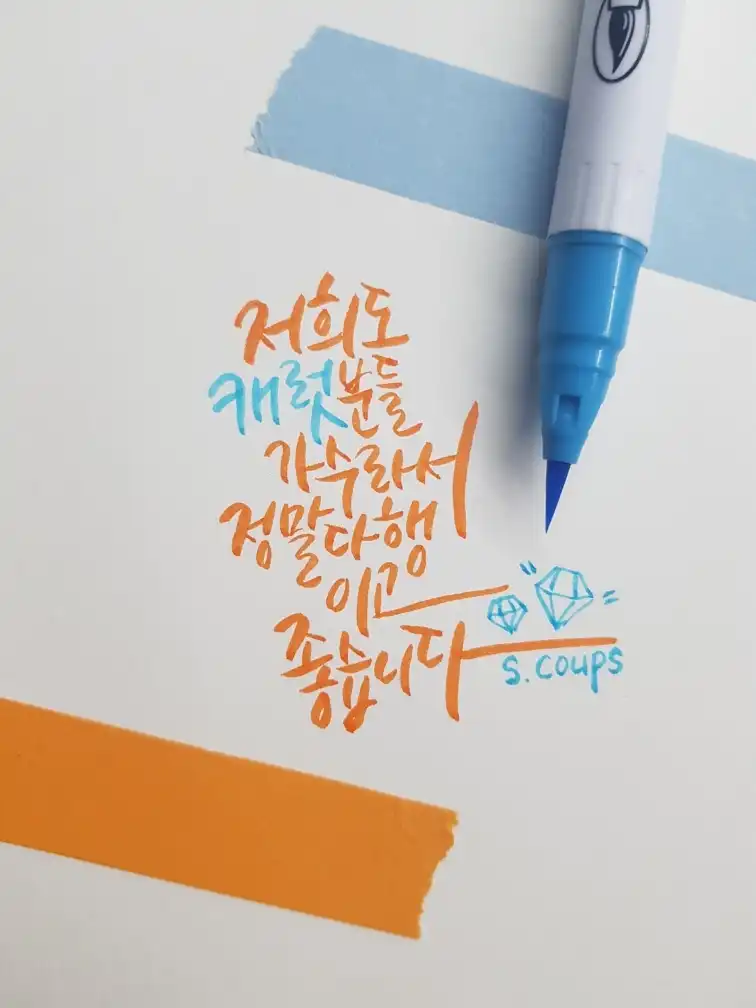 저희도
캐럿분들
가수라서
정말다행
이고
좋습니다
S.COUPS